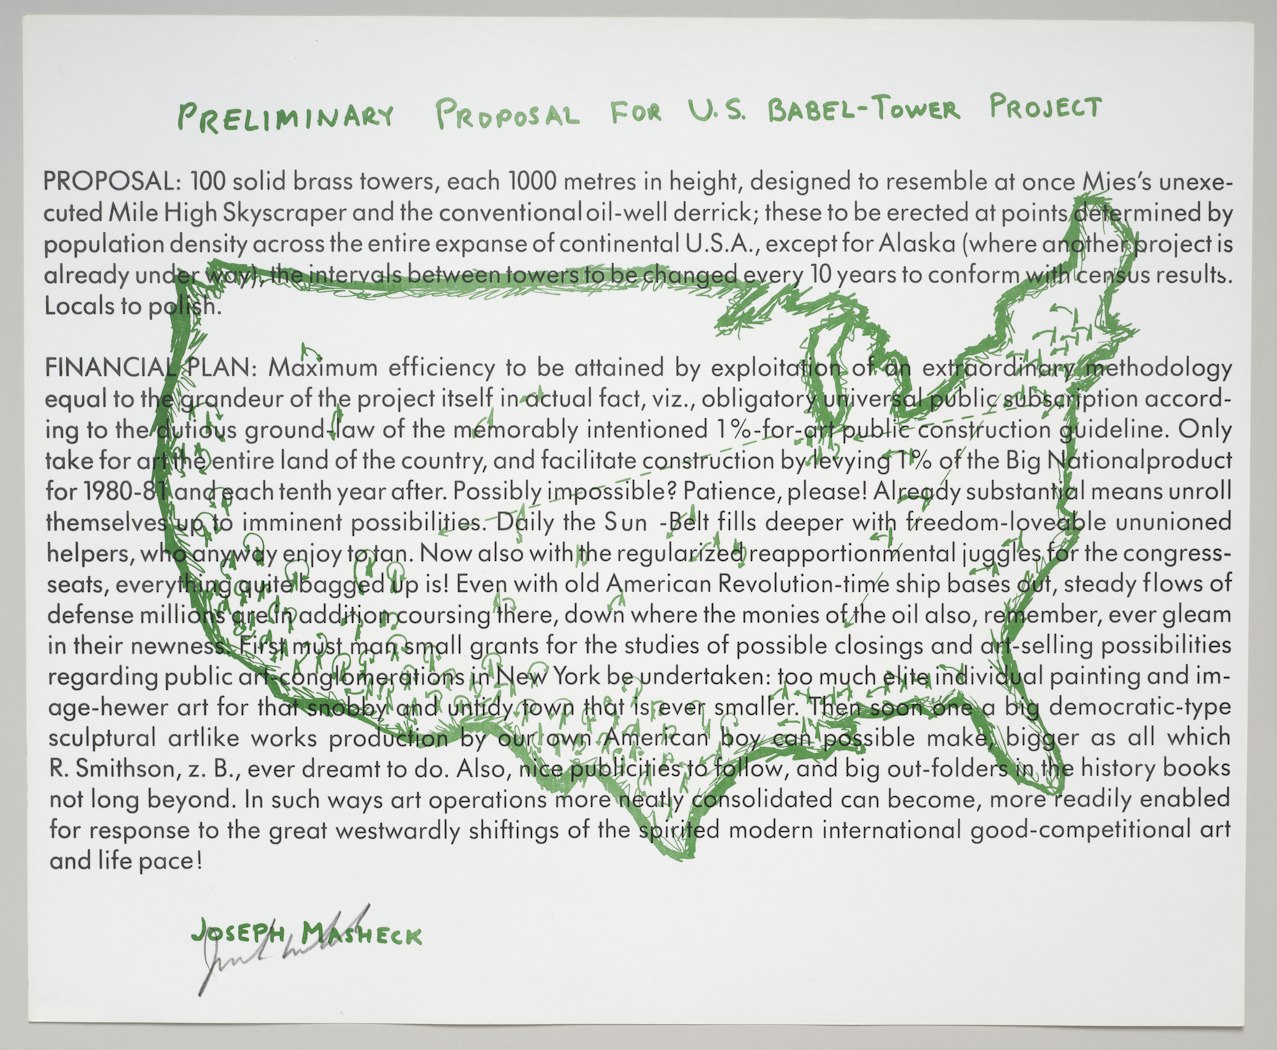 PRELIMINARY PROPOSAL FOR U.S. BABEL-TOWER PROJECT
PROPOSAL: 100 solid brass towers, each 1000 metres in height, designed to resemble at once Mies's unexe-
cuted Mile High Skyscraper and the conventional oil-well derrick; these to be erected at points determined by
population density across the entire expanse of continental U.S.A., except for Alaska (where another project is
already under way), the intervals between towers to be changed every 10 years to conform with census results.
Locals to polish.
FINANCIAL PLAN: Maximum efficiency to be attained by exploitation of an extraordinary methodology
equal to the grandeur of the project itself in actual fact, viz., obligatory universal public subscription accord-
ing to the dutious ground-law of the memorably intentioned 1%-for-art public construction guideline. Only
take for art the entire land of the country, and facilitate construction by levying 1% of the Big Nationalproduct
for 1980-81 and each tenth year after. Possibly impossible? Patience, please! Already substantial means unroll
themselves up to imminent possibilities. Daily the Sun -Belt fills deeper with freedom-loveable ununioned
helpers, who anyway enjoy to tan. Now also with the regularized reapportionmental juggles for the congress-
seats, everything quite bagged up is! Even with old American Revolution-time ship bases out, steady flows of
defense millions are in addition coursing there, down where the monies of the oil also, remember, ever gleam
in their newness. First must man small grants for the studies of possible closings and art-selling possibilities
regarding public art-conglomerations in New York be undertaken: too much elite individual painting and im-
age-hewer art for that snobby and untidy town that is ever smaller. Then soon one a big democratic-type
sculptural artlike works production by our own American boy can possible make, bigger as all which
R. Smithson, z. B., ever dreamt to do. Also, nice publicities to follow, and big out-folders in the history books
not long beyond. In such ways art operations more neatly consolidated can become, more readily enabled
for response to the great westwardly shiftings of the spirited modern international good-competitional art
and life pace!
JOSEPH MASHECK